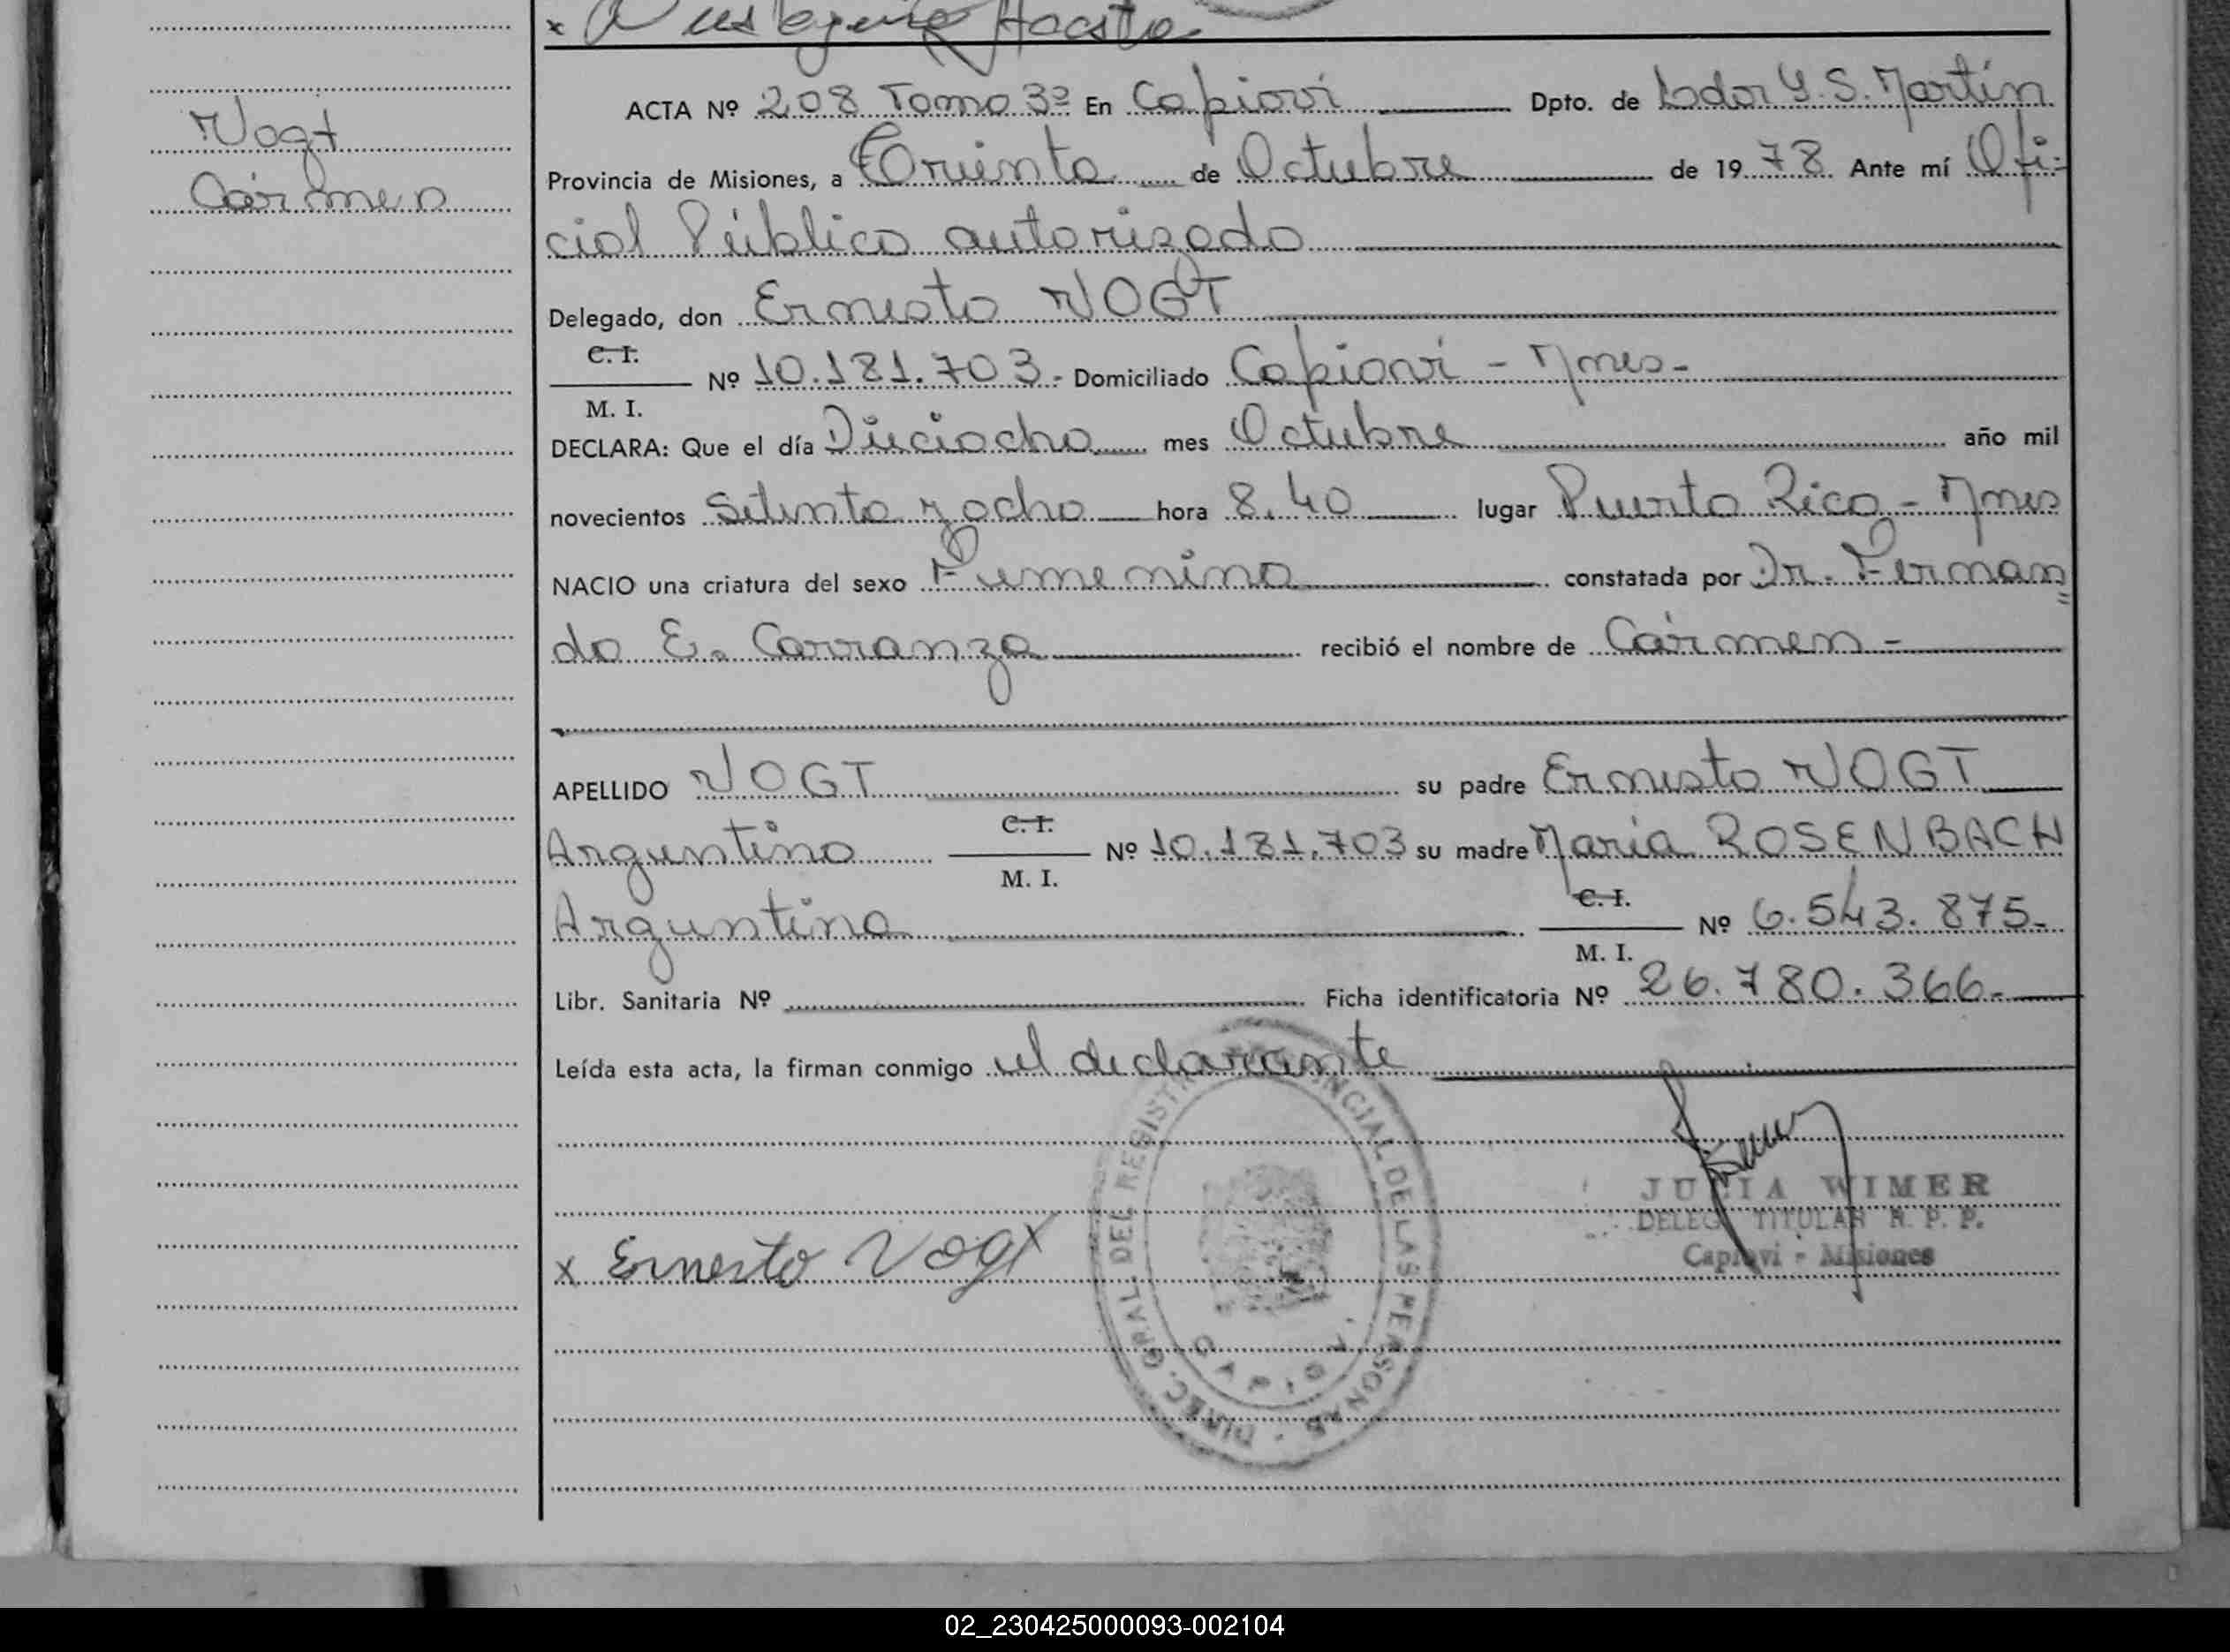 Vogt
Cármen
ACTA Nº 208 Tomo 3º En Capioví Dpto. de Ldor G. S. Martín
Provincia de Misiones, a Treinta de Octubre de 1978 Ante mí Ofi-
cial Público autorizado
Delegado, don Ernesto VOGT
C. I.
Nº 10.181.703.- Domiciliado Capioví - Mnes-
M. I.
DECLARA: Que el día Dieciocho mes Octubre año mil
novecientos Setenta y ocho hora 8.40 lugar Puerto Rico - Mnes
NACIO una criatura del sexo Femenino constatada por Dr. Fernan=
do E. Carranza recibió el nombre de Cármen -
APELLIDO VOGT su padre Ernesto VOGT
C. I.
Argentino Nº 10.181.703 su madre María ROSENBACH
M. I.
C. I.
Argentina Nº 6.543.875-
M. I.
Libr. Sanitaria Nº Ficha identificatoria Nº 26.780.366-
Leída esta acta, la firman conmigo el declarante
DIREC. GRAL. DEL REGISTRO PROVINCIAL DE LAS PERSONAS
JULIA WIMER
DELEG. TITULAR R. P. P.
Capioví - Misiones
x Ernesto Vogt
02_230425000093-002104